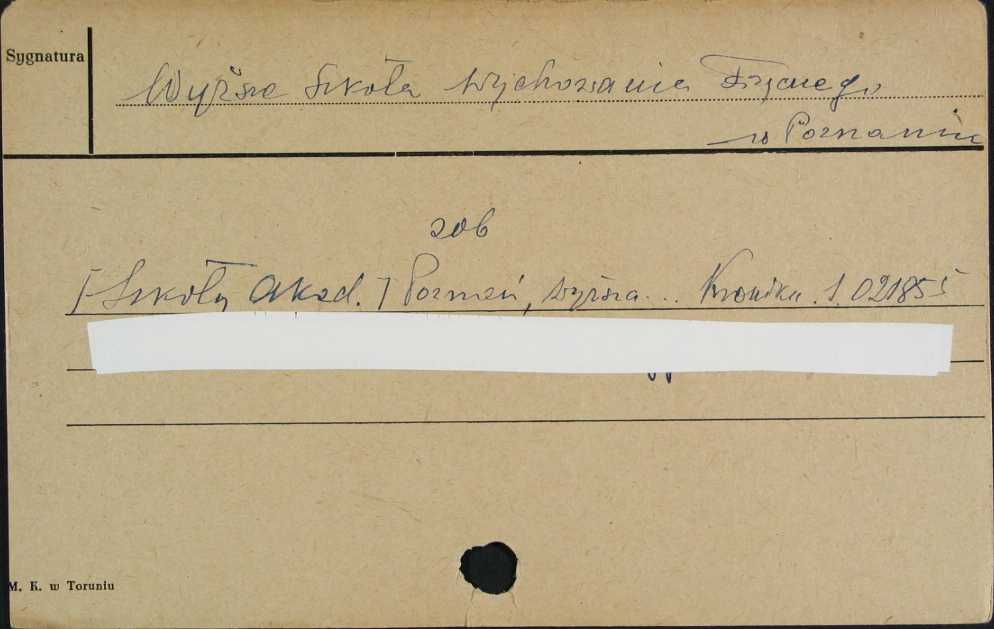 Sygnatura
Wyższa Szkoła Wychowania Fizycznego
w Poznaniu
zob
[Szkoły Akad.] Poznań, wyższa... Kronika. 1. 021855
M. K. w Toruniu